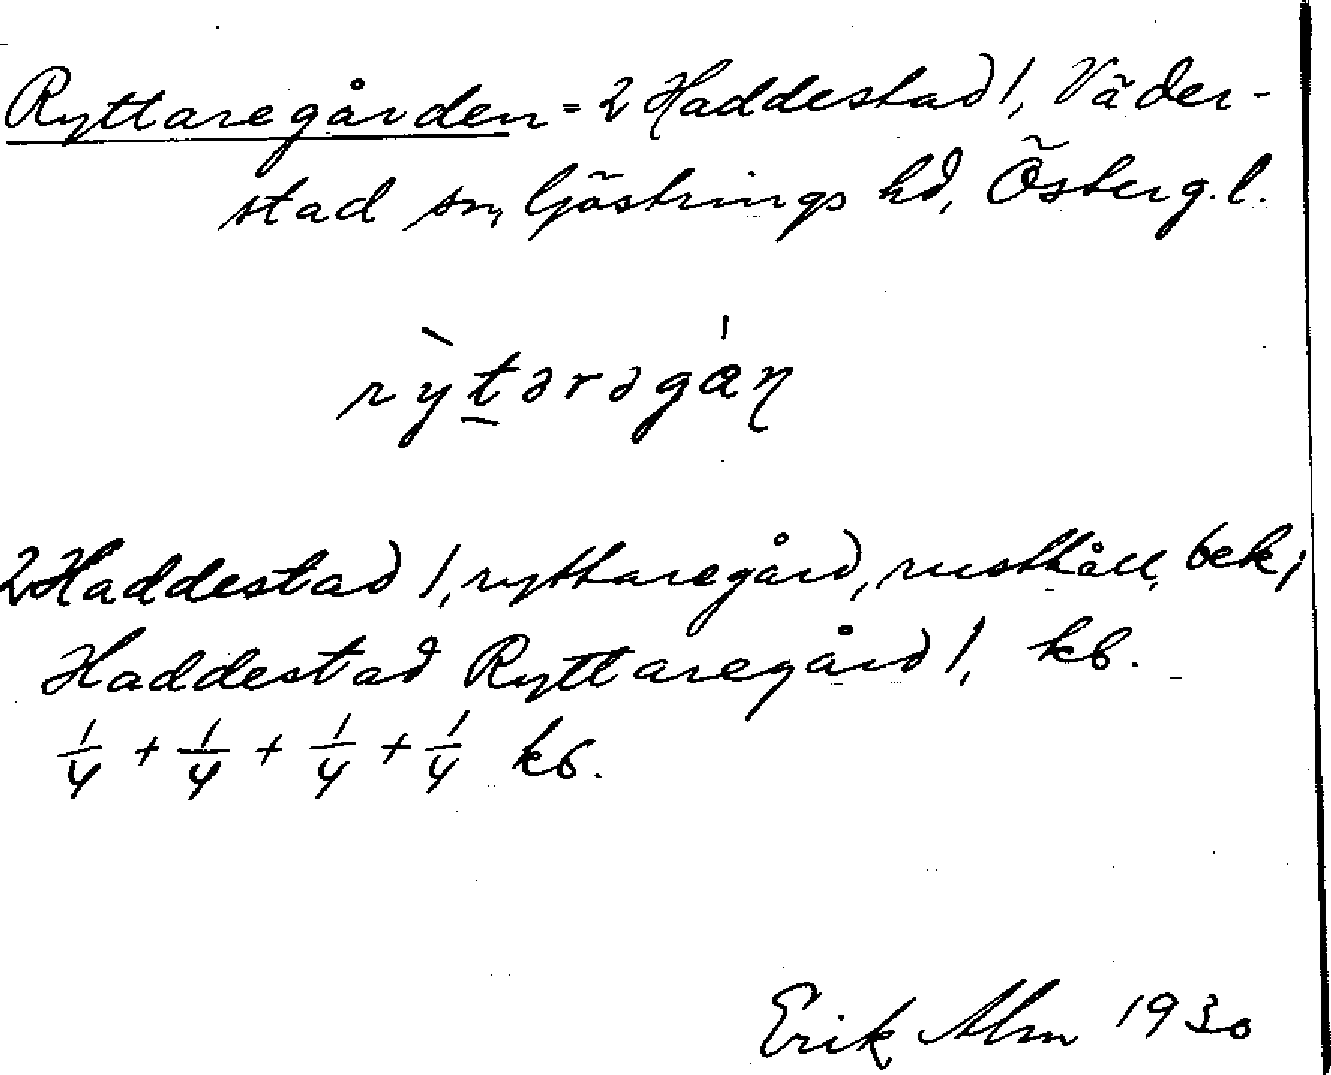 Ryttaregården = 2 Haddestad 1, Väder-
stad sn, Göstrings hd, Österg.l.
rỳtərəgá̇ɳ
2 Haddestad 1, ryttaregård, rusthåll, bek;
Haddestad Ryttaregård 1, kb.
1/4 + 1/4 + 1/4 + 1/4 kb.
Erik Alm 1930